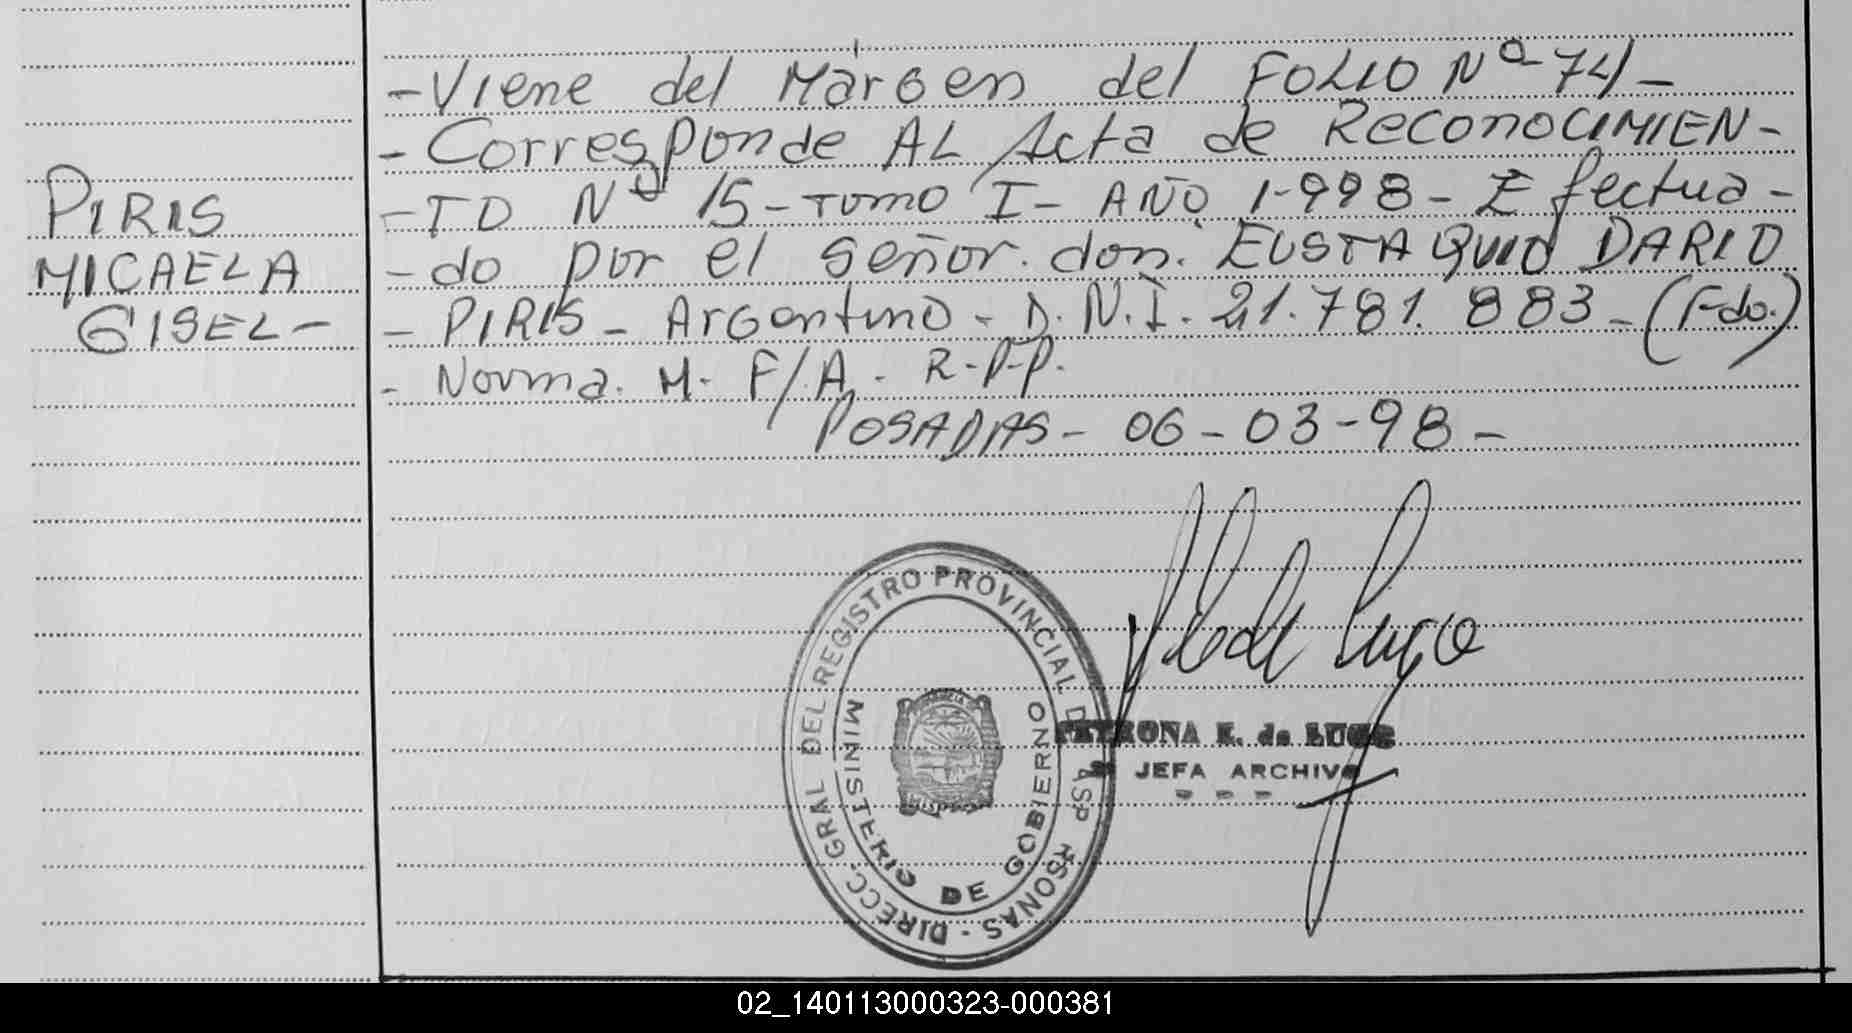 PIRIS
MICAELA
GISEL-
-Viene del Margen del FOLIO Nº 74-
-Corresponde AL Acta de RECONOCIMIEN-
-TO Nº 15-TOMO I- AÑO 1-998- Efectua-
-do por el señor. don. EUSTAQUIO DARIO
- PIRIS- Argentino- D.N.I. 21.781.883-(Fdo.)
- Norma. M. F/A. R.P.P.
POSADAS- 06-03-98-
DIRECC. GRAL DEL REGISTRO PROVINCIAL DE LAS PERSONAS.
MINISTERIO DE GOBIERNO
PETRONA E. de LUGO
JEFA ARCHIVO
02_140113000323-000381